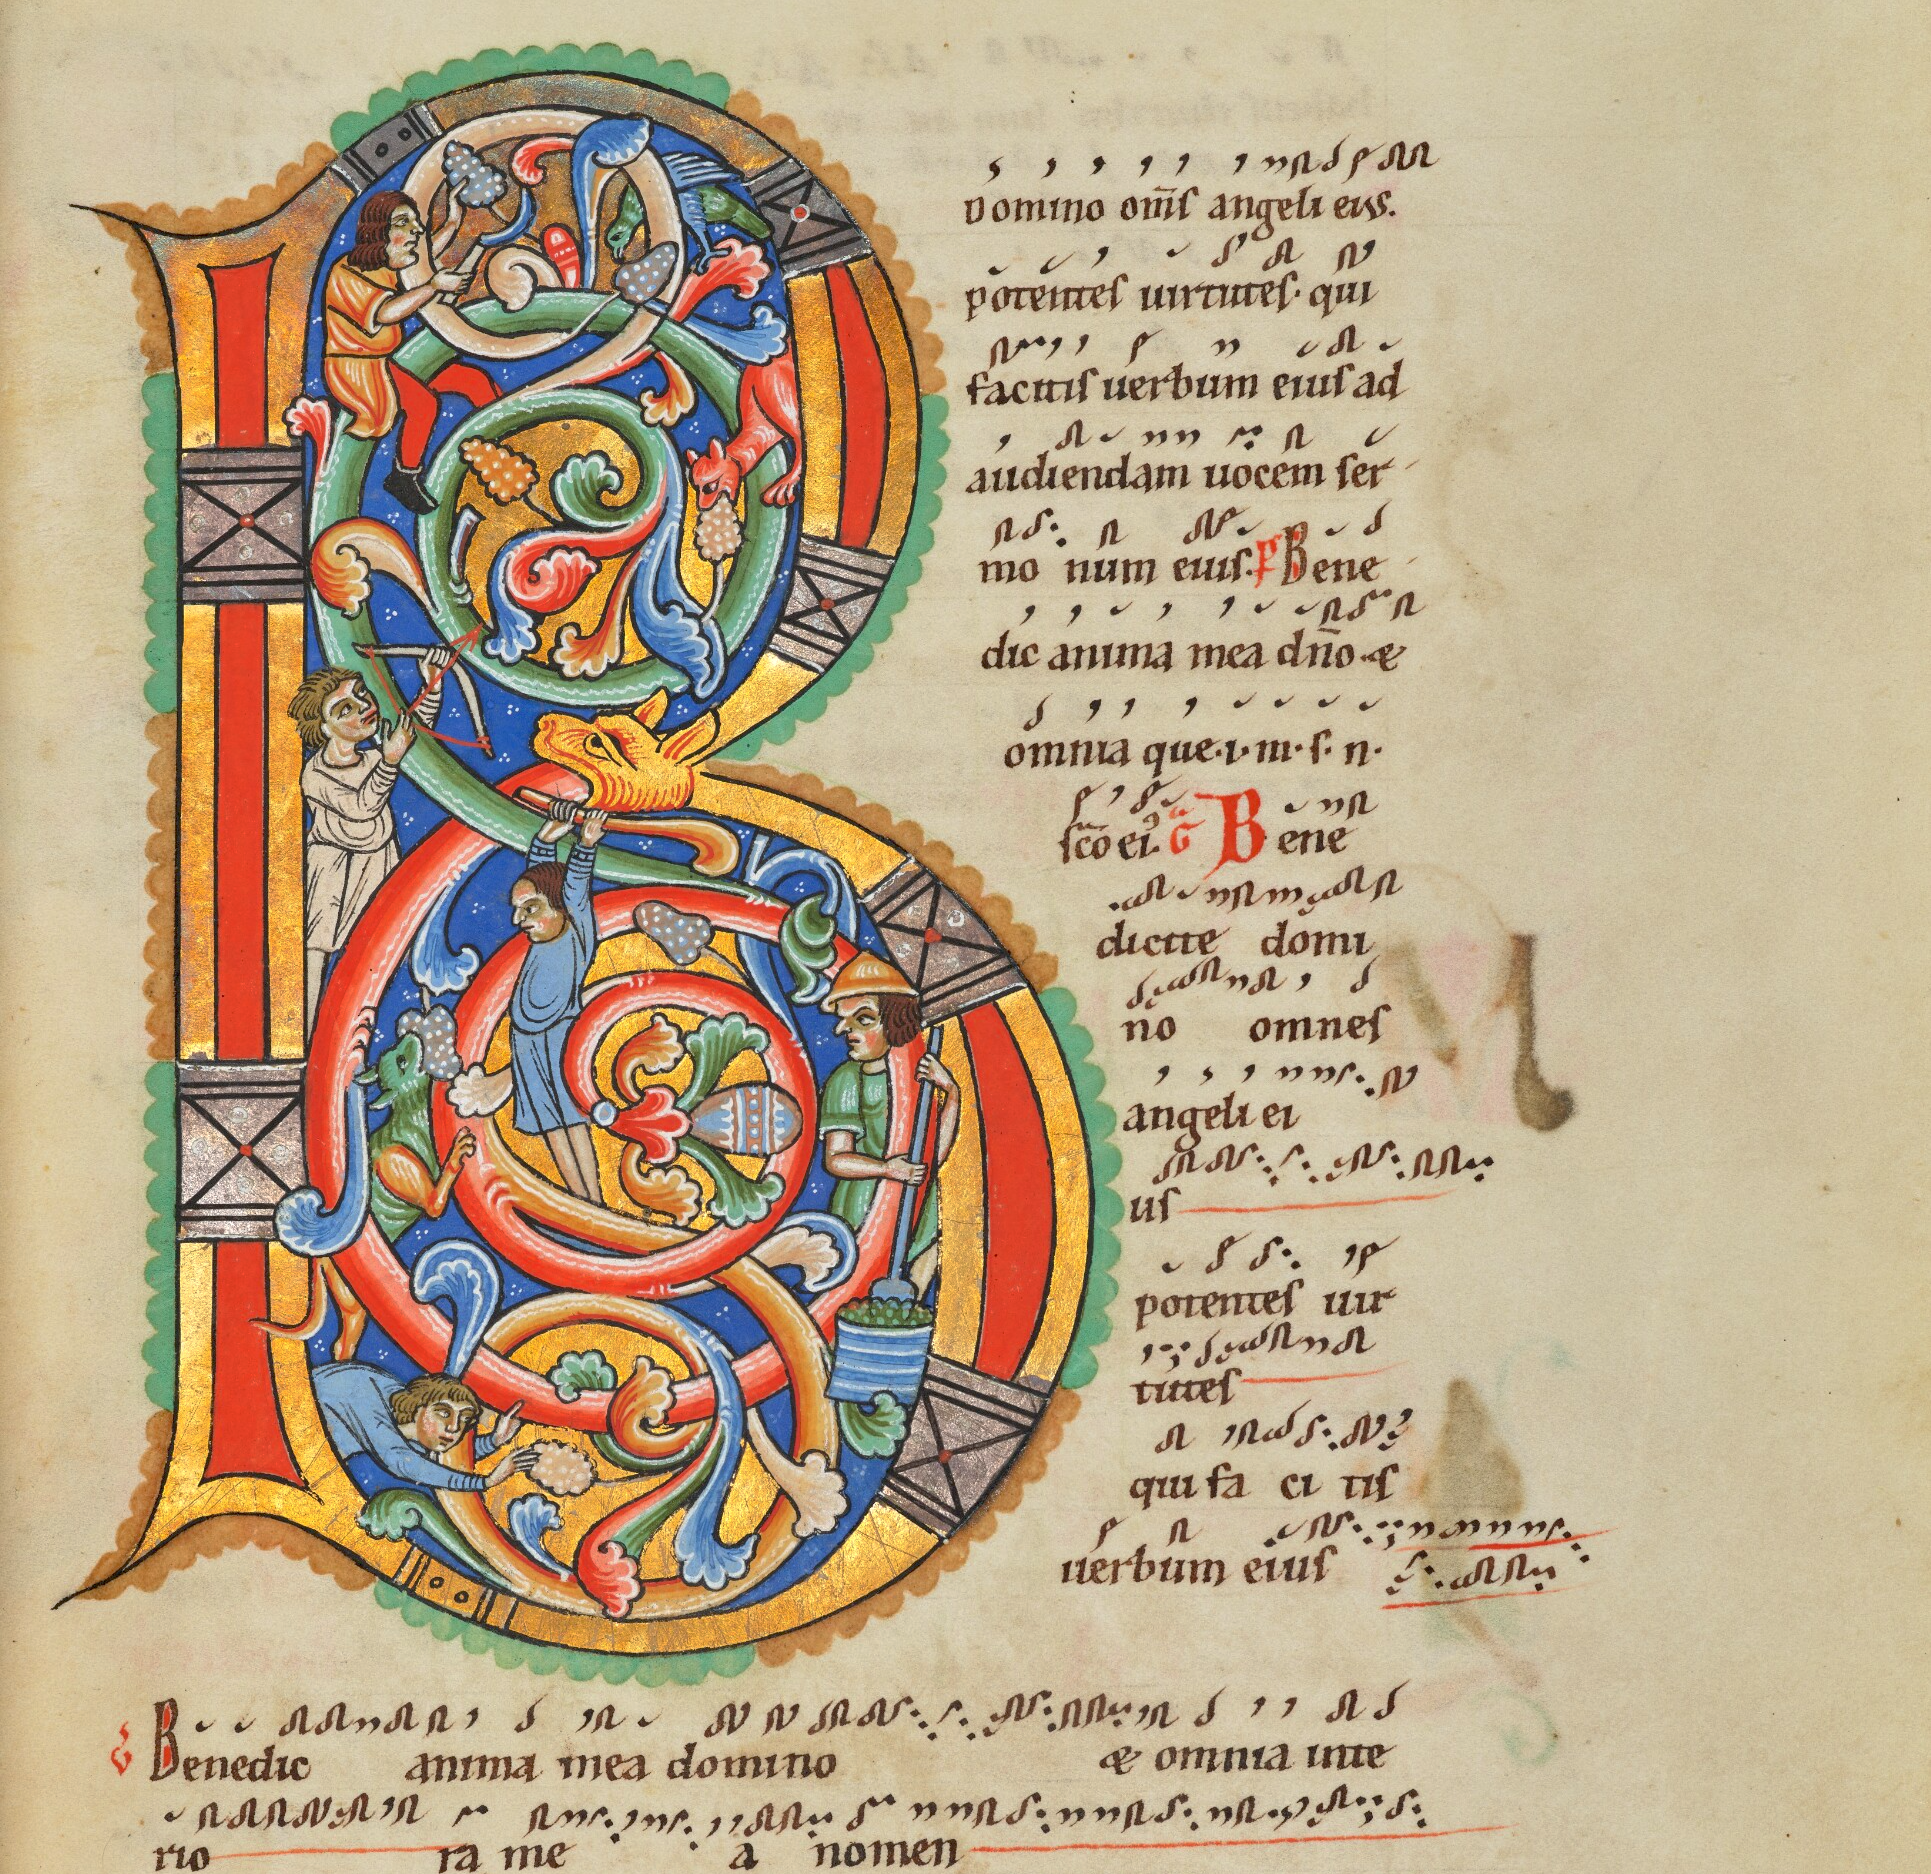 B
Domino om̅ſ angeli eius.
potenteſ uirtuteſ· qui
facitiſ uerbum eiuſ ad
audiendam uocem ſer
mo num eiuſ. P Bene
dic anima mea dn̅o· &
omnia que·i·m·ſ· n·
ſc̅o ei᷒. G Bene
dicite domi
no omneſ
angeli ei
uſ
potenteſ uir
tuteſ
qui fa ci tiſ
uerbum eiuſ
Benedic anima mea domino & omnia inte
rio ra me a nomen